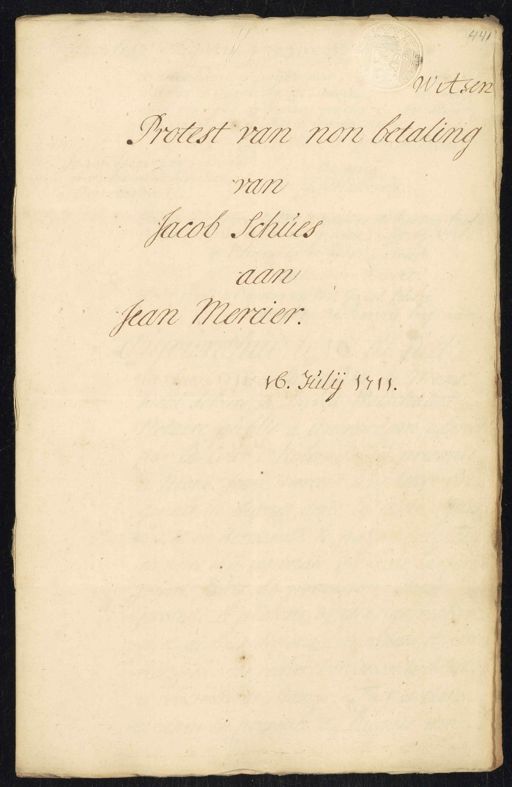 441
Witsen
Protest van non betaling
van
Jacob Schúes
aan
Jean Mercier.
16. Júlij 1711.